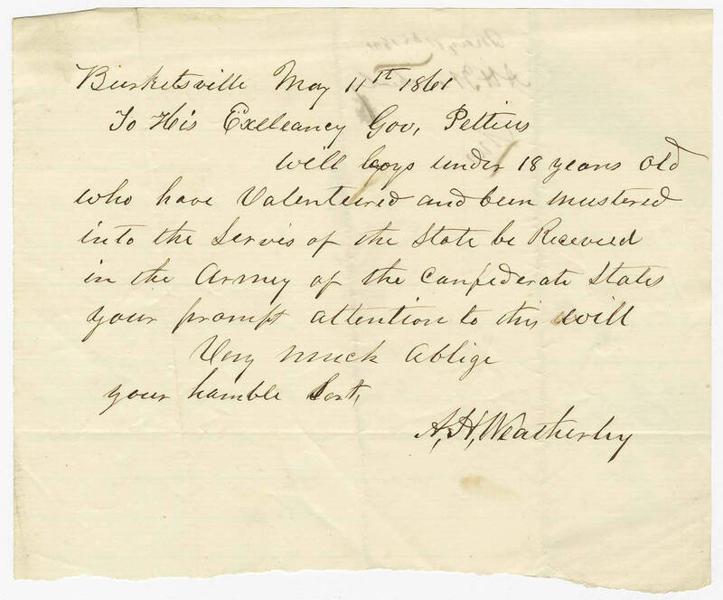 Burketsville May 11th 1861
To His Exelleancy Gov, Pettius
will boys under 18 years old
who have Valenteered and been mustered
into the Servis of the State be Receved
in the Armey of the Confederate States
your prompt attention to this will
Very much Ablige
your hamble Sert,
A, H, Weatherby